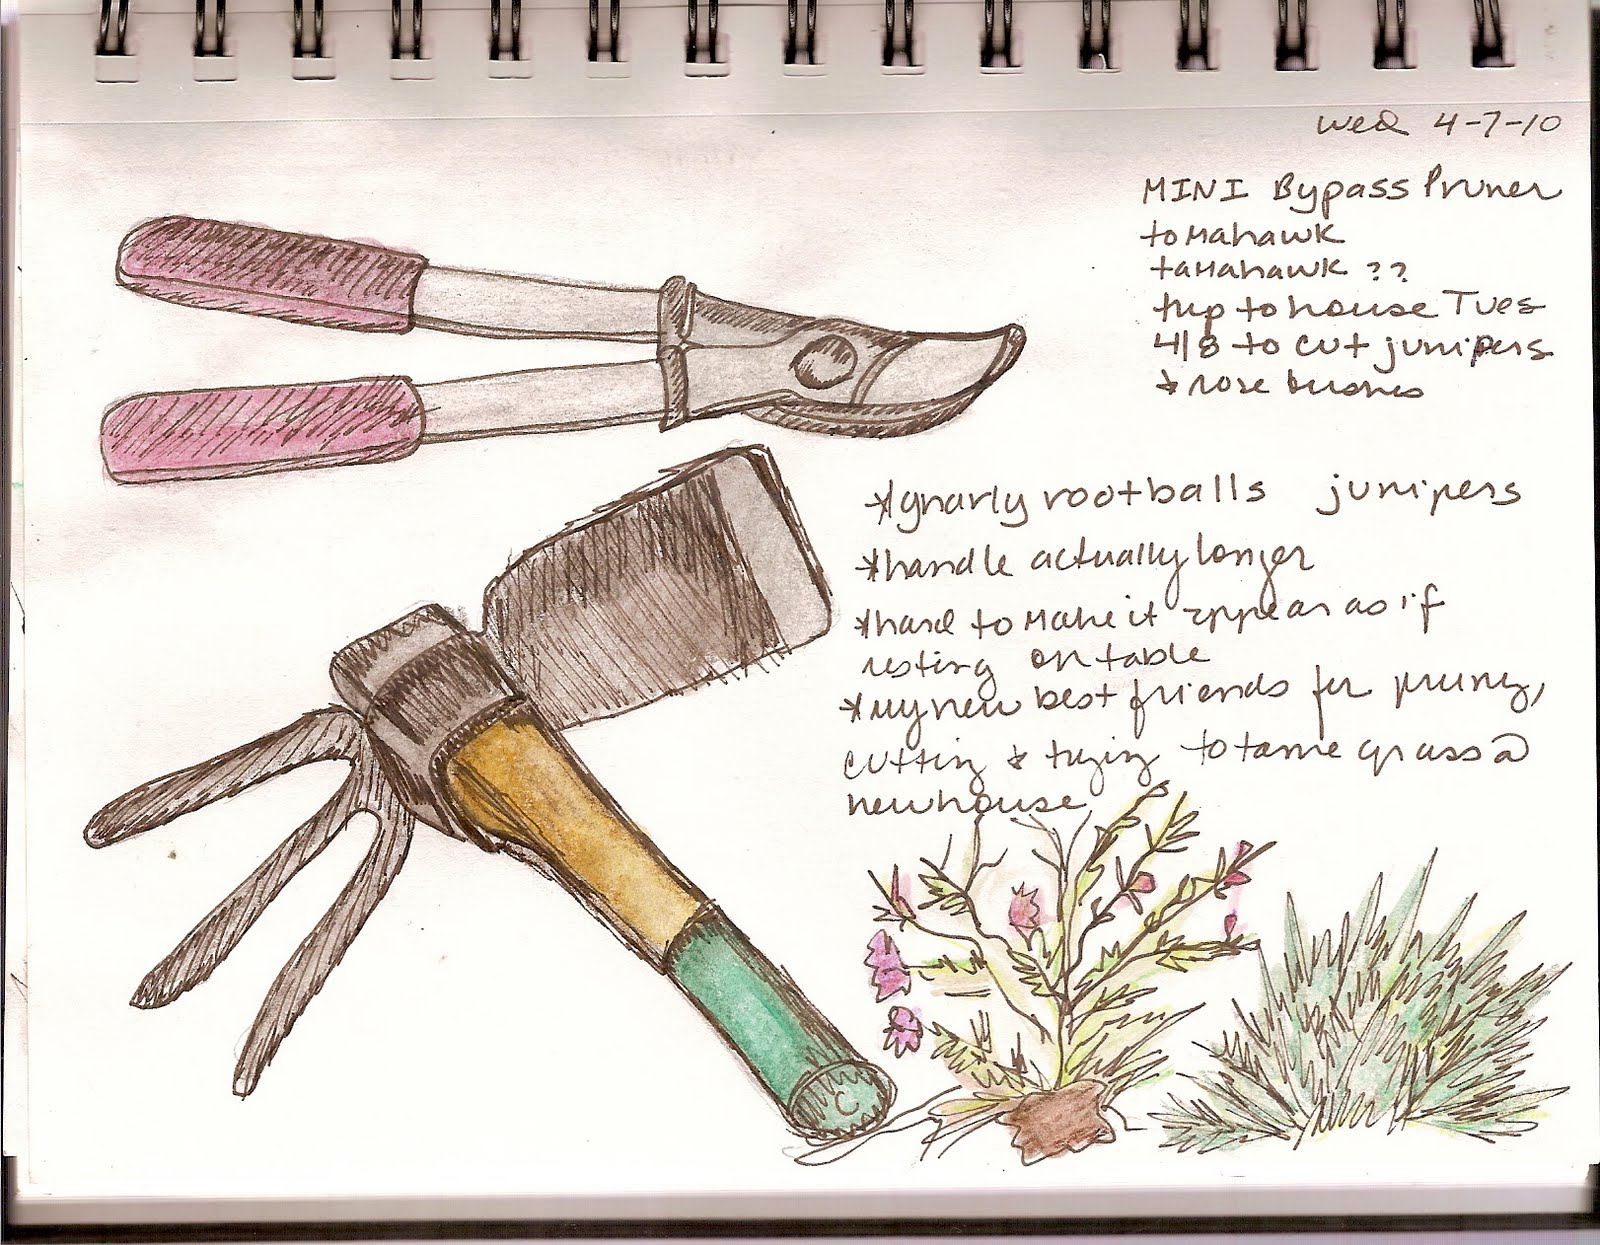 Wed 4-7-10
MINI Bypass Pruner
tomahawk
tamahawk ??
trip to house Tues
4/8 to cut junipers
& rose bushes
*gnarly rootballs junipers
*handle actually longer
*hard to make it appear as if
resting on table
*my new best friends for pruning,
cutting & trying to tame grass @
new house
C